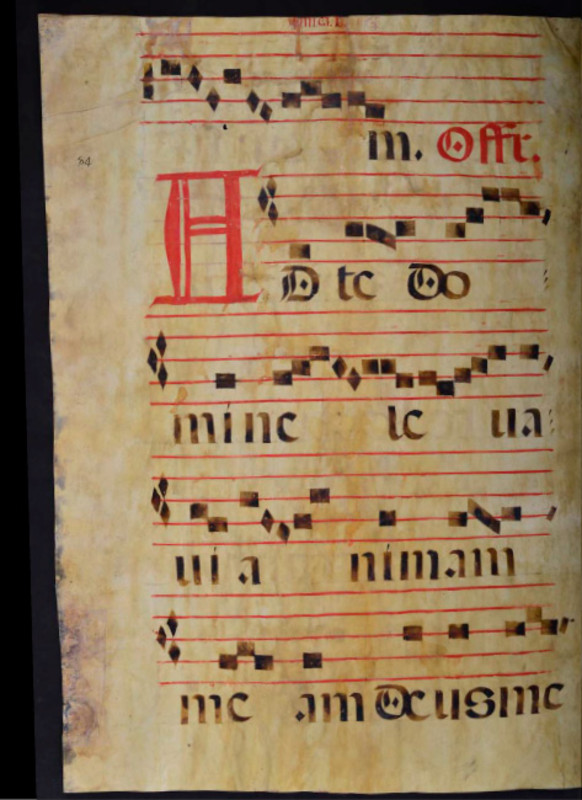 m. Offr.
AD te Do
mine le ua
ui a nimam
me am Deus me